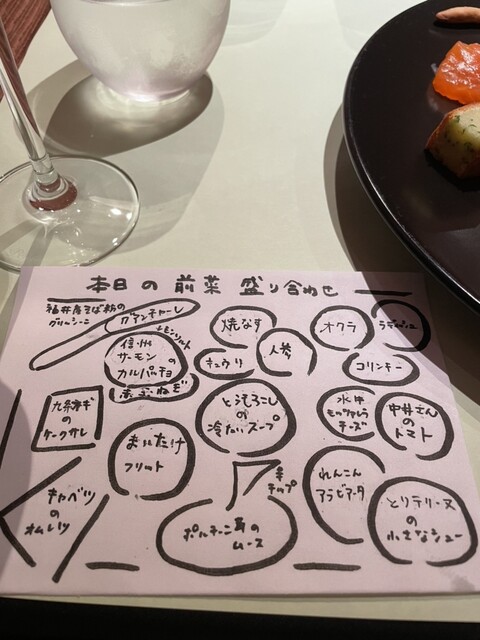 本日の前菜盛り合わせ
福井産そば粉の
グリッシーニ
グアンチャーレ
レモンソルト
信州
サーモン
の
カルパッチョ
赤たまねぎ
焼なす
オクラ
ラディッシュ
キュウリ
人参
コリンキー
九条ネギ
の
ケークサレ
まいたけ
フリット
とうもろこし
の
冷たいスープ
水牛
モッツァレラ
チーズ
中井さん
の
トマト
キャベツ
の
オムレツ
チップ
ポルチーニ茸の
ムース
れんこん
アラビアータ
とりテリーヌ
の
小さなシュー